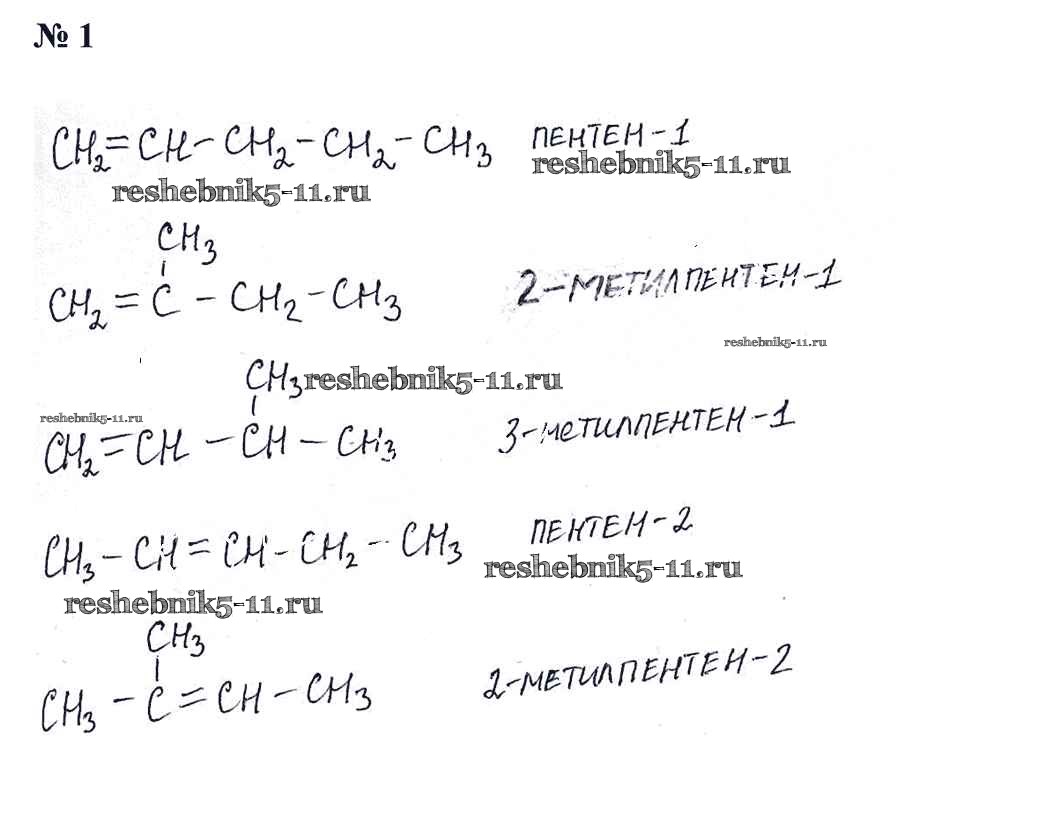 № 1
CH₂=CH-CH₂-CH₂-CH₃ ПЕНТЕН-1
reshebnik5-11.ru
reshebnik5-11.ru
CH₃
CH₂=C-CH₂-CH₃ 2-МЕТИЛПЕНТЕН-1
reshebnik5-11.ru
CH₃ reshebnik5-11.ru
reshebnik5-11.ru
CH₂=CH-CH-CH₃ 3-МЕТИЛПЕНТЕН-1
CH₃-CH=CH-CH₂-CH₃ ПЕНТЕН-2
reshebnik5-11.ru
reshebnik5-11.ru
CH₃
CH₃-C=CH-CH₃ 2-МЕТИЛПЕНТЕН-2